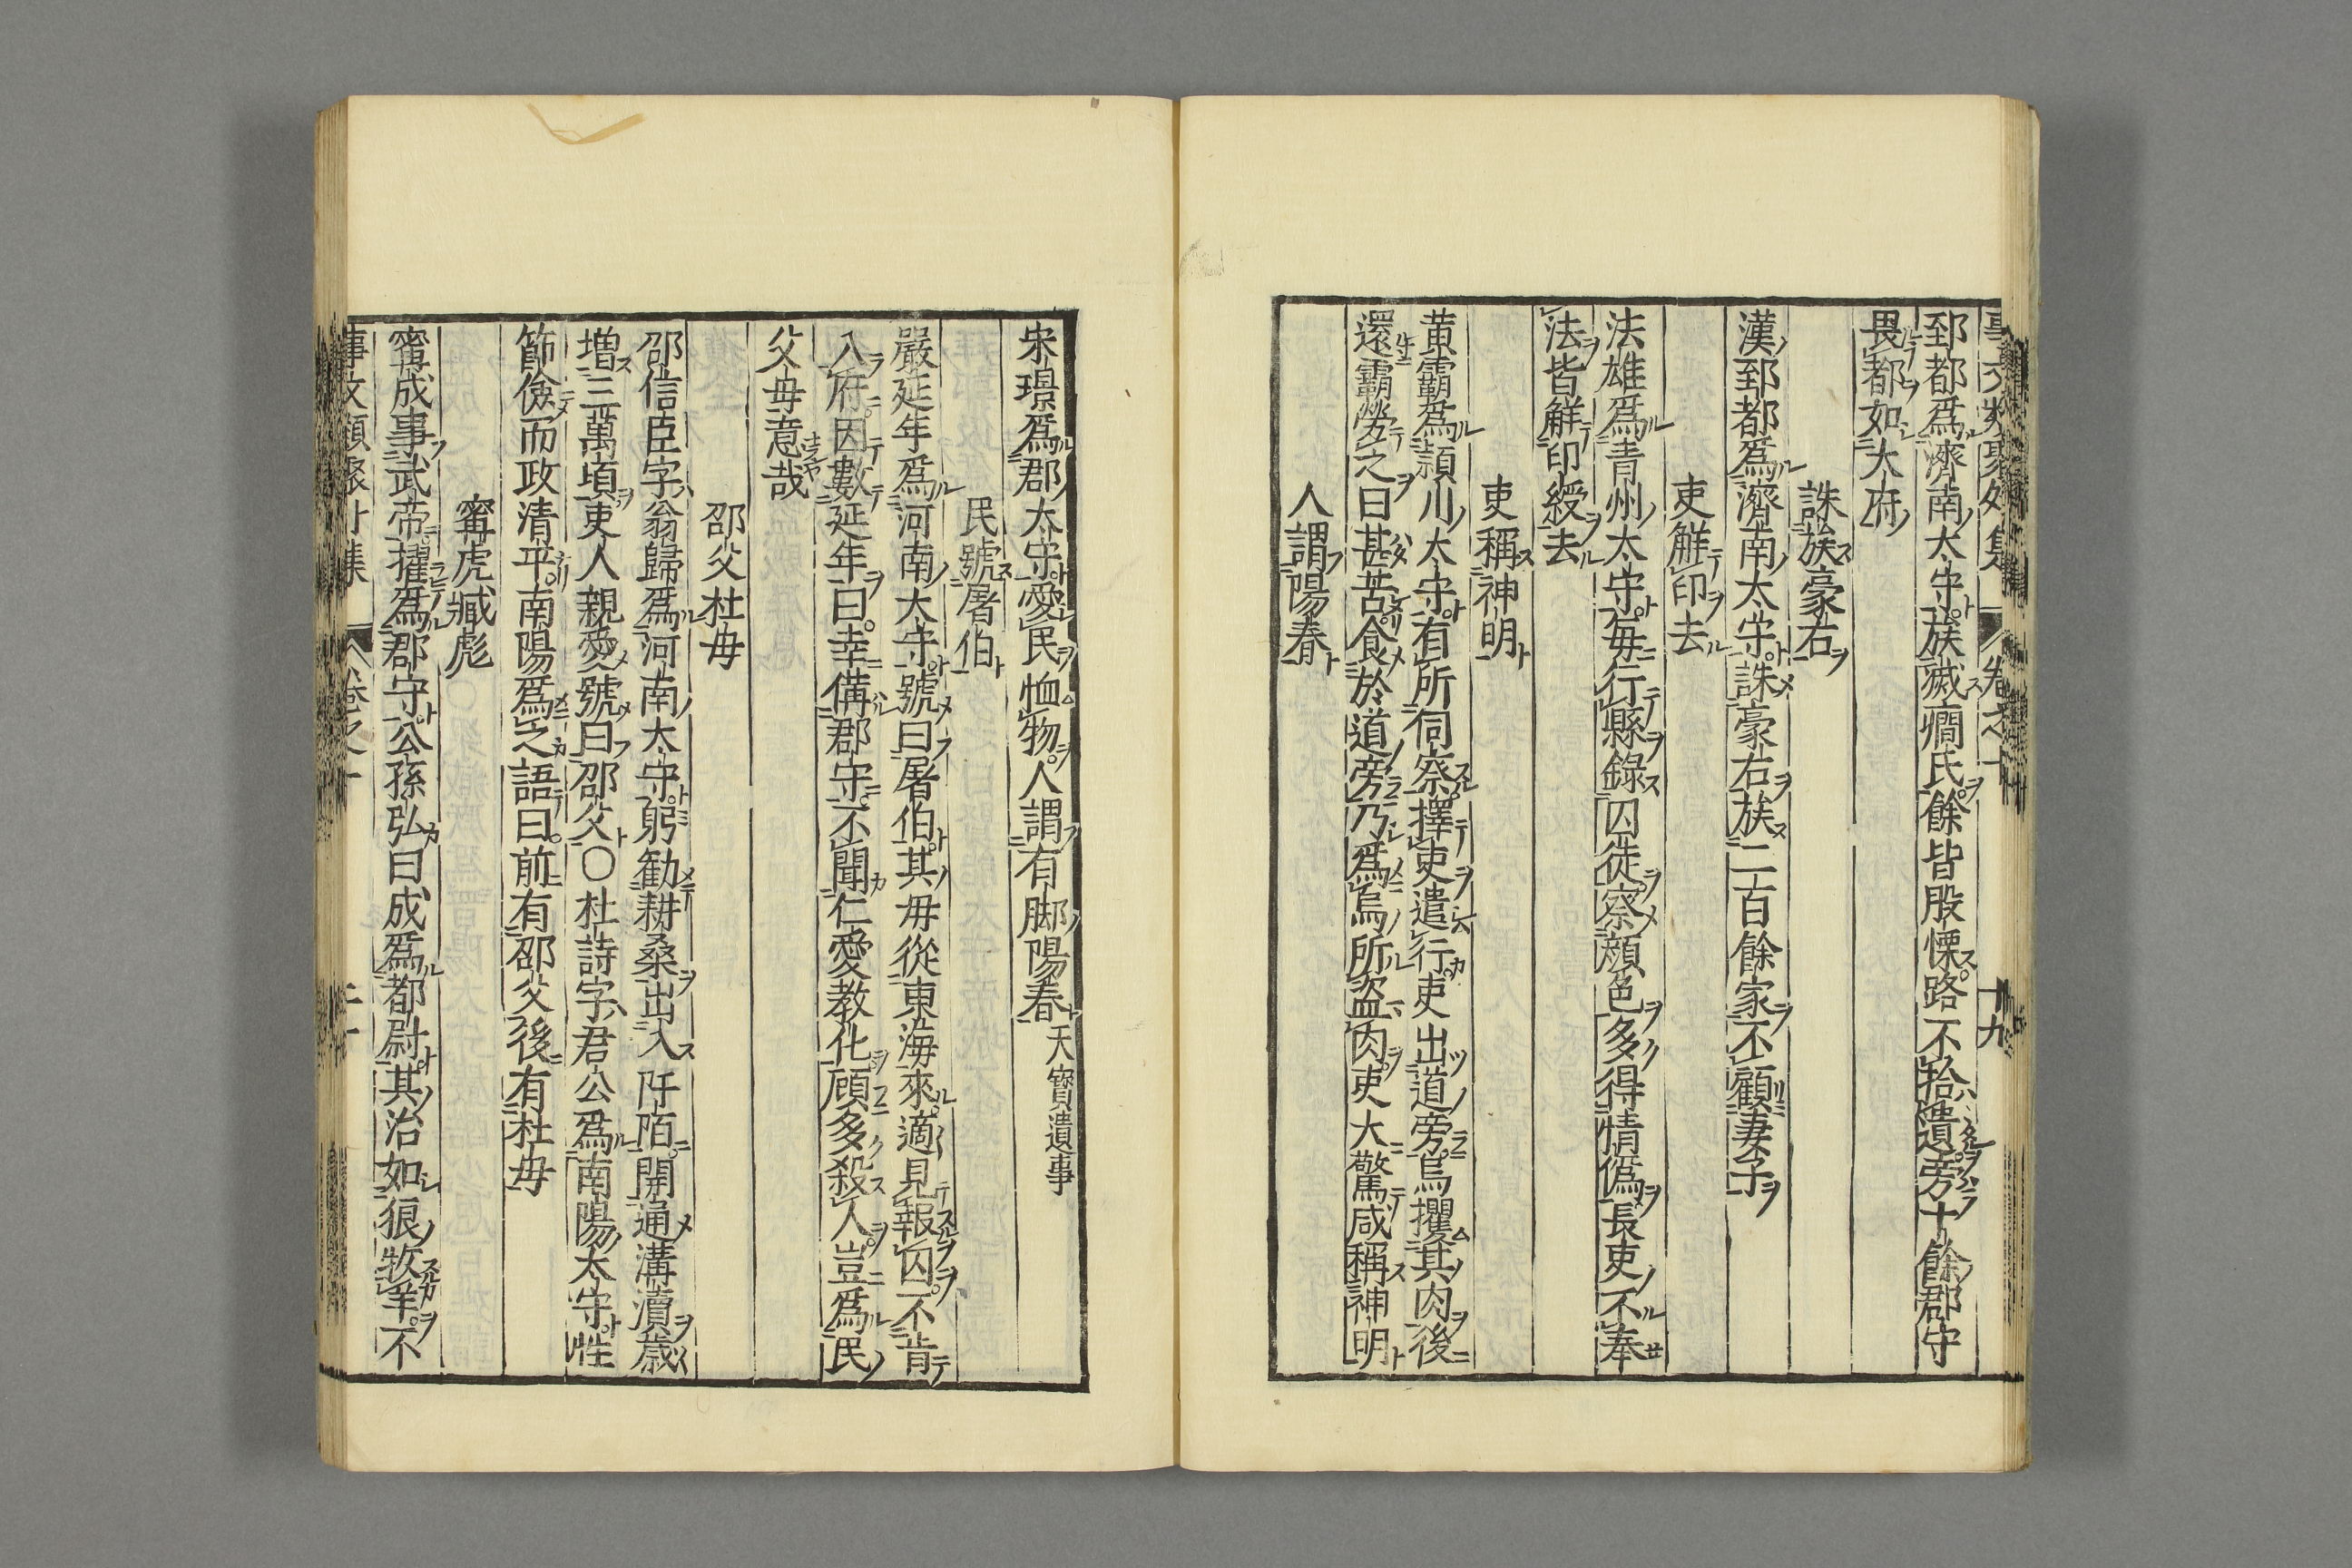 郅都爲濟南太守族滅瘹氏餘皆股慄路不拾遺旁十餘郡守
畏都如大府
誅族豪右
漢郅都爲濟南太守誅豪右族二百餘家不顧妻子
吏解印去
法雄爲青州太守每行縣錄囚徒察顏色多得情僞長吏不奉
法皆解印綬去
吏稱神明
黃霸爲潁川太守有所伺察擇吏遣行吏出道旁烏攫其肉後
還霸勞之曰甚苦食於道旁乃爲烏所盜肉吏大驚咸稱神明
人謂陽春
宋璟爲郡太守愛民恤物人謂有脚陽春 天寶遺事
民號屠伯
嚴延年爲河南太守號曰屠伯其母從東海來適見報囚不肯
入府因數延年曰幸備郡守不聞仁愛敎化顧多殺人豈爲民
父母意哉
邵父杜母
邵信臣字翁歸爲河南太守躬勸耕桑出入阡陌開通溝瀆歲
增三萬頃吏人親愛號曰邵父〇杜詩字君公爲南陽太守性
節儉而政淸平南陽爲之語曰前有邵父後有杜母
甯虎臧彪
甯成事武帝擢爲郡守公孫弘曰成爲都尉其治如狼牧羊不